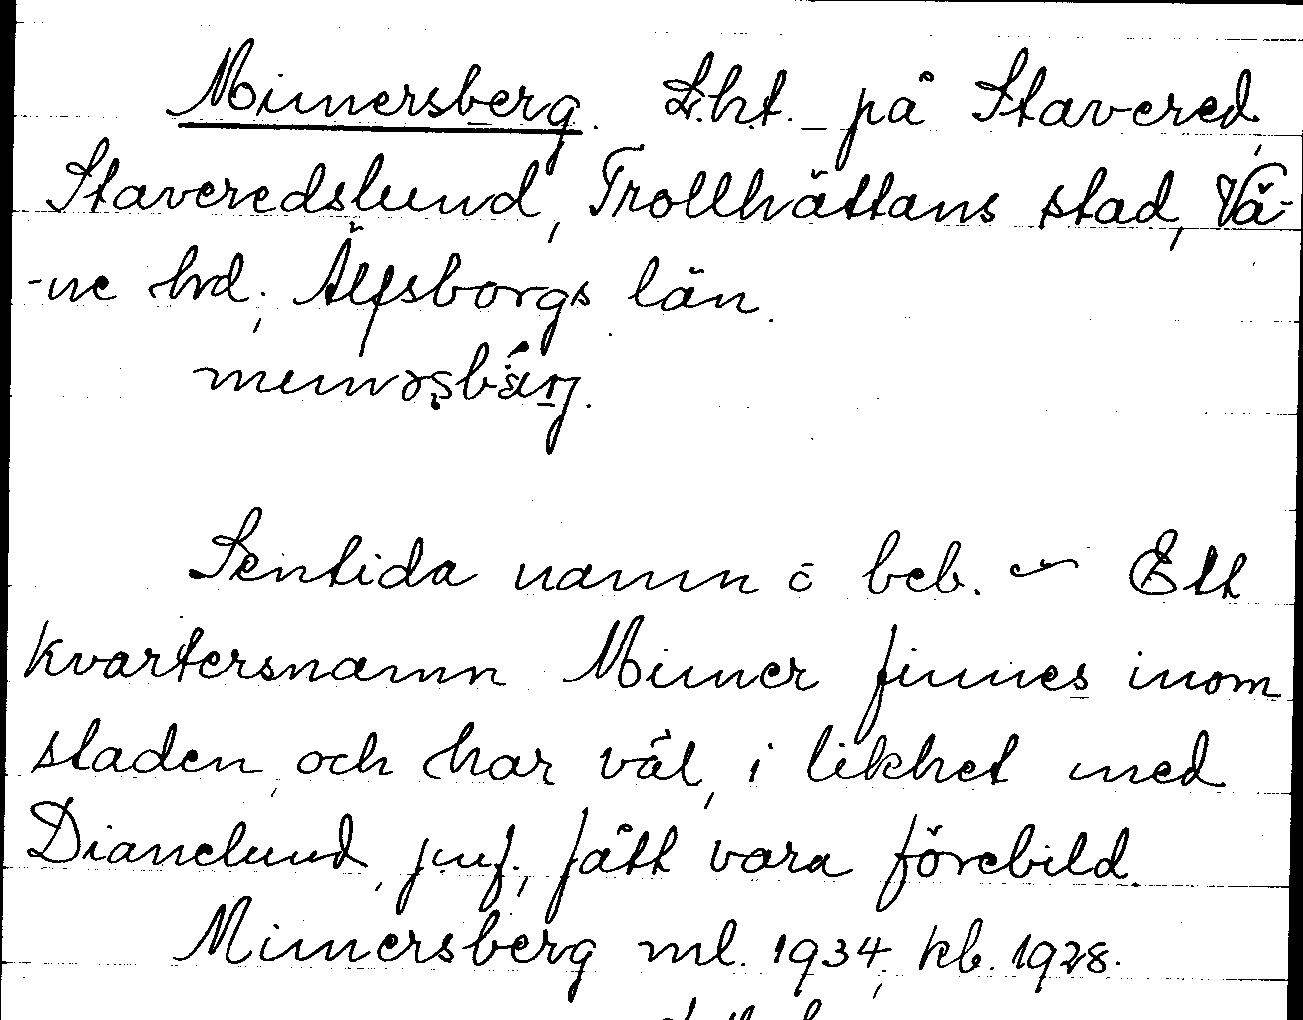 Mimersberg. L:ht. på Stavered,
Staveredslund, Trollhättans stad, Vä-
-ne hrd., Älfsborgs län.
Sentida namn o beb. Ett
kvartersnamn Mimer finnes inom
staden, och har väl, i likhet med
Dianelund, jmf., fått vara förebild.
Mimersberg ml. 1934, kb. 1928.